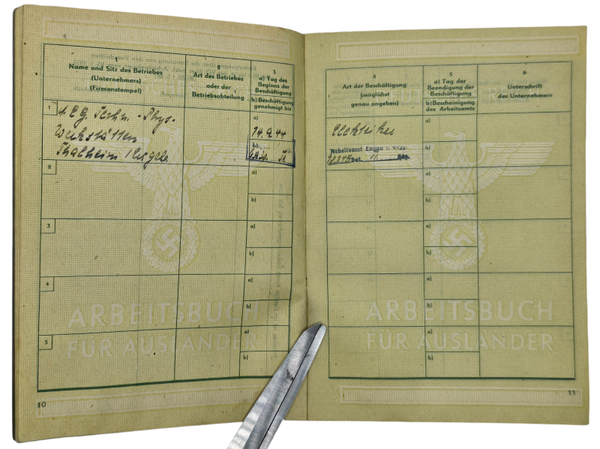 1
Name und Sitz des Betriebes
(Unternehmers)
(Firmenstempel)
2
Art des Betriebes
oder der
Betriebsabteilung
3
a) Tag des
Beginns der
Beschäftigung
b) Beschäftigung
genehmigt bis
1
A.E.G. Techn.-Phys.
Werkstätten
Thalheim
a)
14.9.44
b)
2
a)
b)
3
a)
b)
4
a)
b)
5
a)
b)
ARBEITSBUCH
FÜR AUSLÄNDER
10
4
Art der Beschäftigung
(möglichst
genau angeben)
5
a) Tag der
Beendigung der
Beschäftigung
b) Bescheinigung
des Arbeitsamts
6
Unterschrift
des Unternehmers
Elektriker
Arbeitsamt
a)
b)
a)
b)
a)
b)
a)
b)
a)
b)
ARBEITSBUCH
FÜR AUSLÄNDER
11